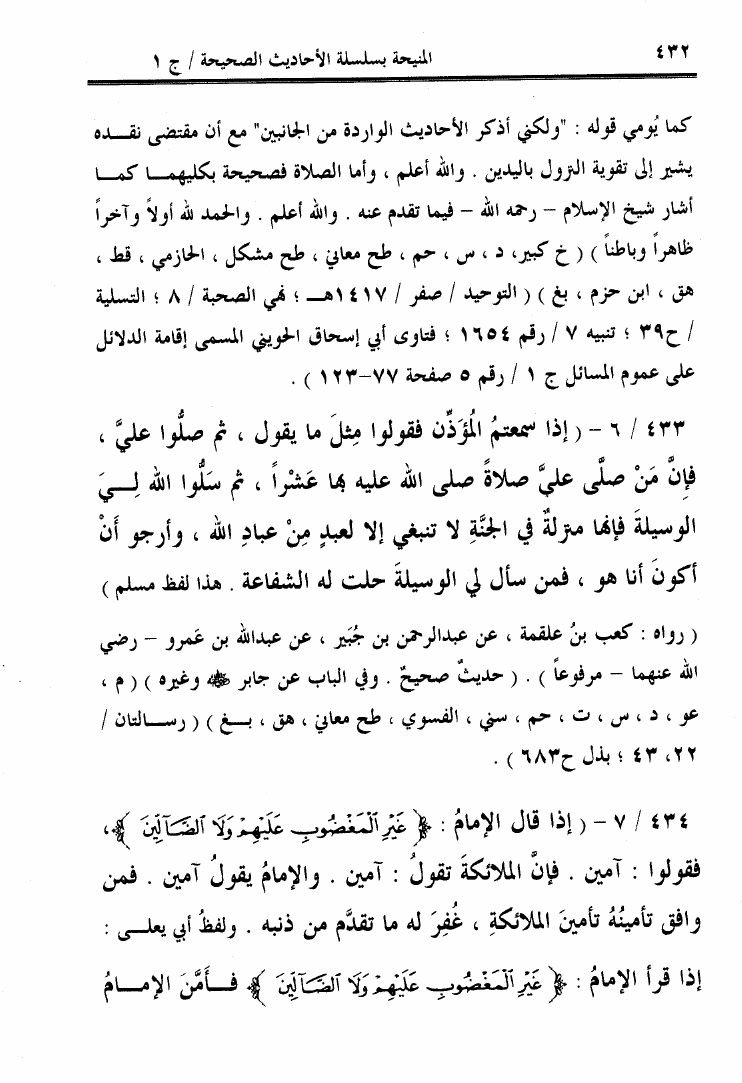 ٤٣٢ المنيحة بسلسلة الأحاديث الصحيحة / ج ١
كما يُومي قوله : "ولكني أذكر الأحاديث الواردة من الجانبين" مع أن مقتضى نقـــده
يشير إلى تقوية النزول باليدين . والله أعلم ، وأما الصلاة فصحيحة بكليهمـــا كمـــا
أشار شيخ الإسلام – رحمه الله – فيما تقدم عنه . والله أعلم . والحمد لله أولاً وآخراً
ظاهراً وباطناً ) ( خ كبير، د ، س ، حم ، طح معاني ، طح مشكل ، الحازمي ، قط ،
هق ، ابن حزم ، بغ ) ( التوحيد / صفر / ١٤١٧هـــ ؛ نهي الصحبة / ٨ ؛ التسلية
/ ح٣٩ ؛ تنبيه ٧ / رقم ١٦٥٤ ؛ فتاوى أبي إسحاق الحويني المسمى إقامة الدلائل
على عموم المسائل ج ١ / رقم ٥ صفحة ٧٧–١٢٣ ) .
٤٣٣ / ٦ – ( إذا سمعتمُ المُؤَذِّن فقولوا مِثلَ ما يقول ، ثم صلُّوا عليَّ ،
فإنَّ مَنْ صلَّى عليَّ صلاةً صلى الله عليه بها عَشْراً ، ثم سَلُّوا الله لِـــيَ
الوسيلةَ فإنها منزلةٌ في الجنَّةِ لا تنبغي إلا لعبدٍ مِنْ عبادِ الله ، وأرجو أنْ
أكونَ أنا هو ، فمن سأل لي الوسيلةَ حلت له الشفاعة . هذا لفظ مسلم )
( رواه : كعب بنُ علقمة ، عن عبدالرحمن بن جُبَير ، عن عبدالله بن عَمرو – رضي
الله عنهما – مرفوعاً ) . ( حديثٌ صحيحٌ . وفي الباب عن جابر ﷺ وغيره ) ( م ،
عو ، د ، س ، ت ، حم ، سني ، الفسوي ، طح معاني ، هق ، بـــغ ) ( رســـالتان /
٢٢، ٤٣ ؛ بذل ح٦٨٣ ) .
٤٣٤ / ٧ – ( إذا قال الإمامُ : ﴿ غَيْرِ ٱلْمَغْضُوبِ عَلَيْهِمْ وَلَا ٱلضَّآلِّينَ ﴾،
فقولوا : آمين . فإنَّ الملائكةَ تقولُ : آمين . والإمامُ يقولُ آمين . فمن
وافق تأمينُهُ تأمينَ الملائكةِ ، غُفِرَ له ما تقدَّم من ذنبه . ولفظُ أبي يعلـــى :
إذا قرأ الإمامُ : ﴿ غَيْرِ ٱلْمَغْضُوبِ عَلَيْهِمْ وَلَا ٱلضَّآلِّينَ ﴾ فـــأَمَّنَ الإمـــامُ